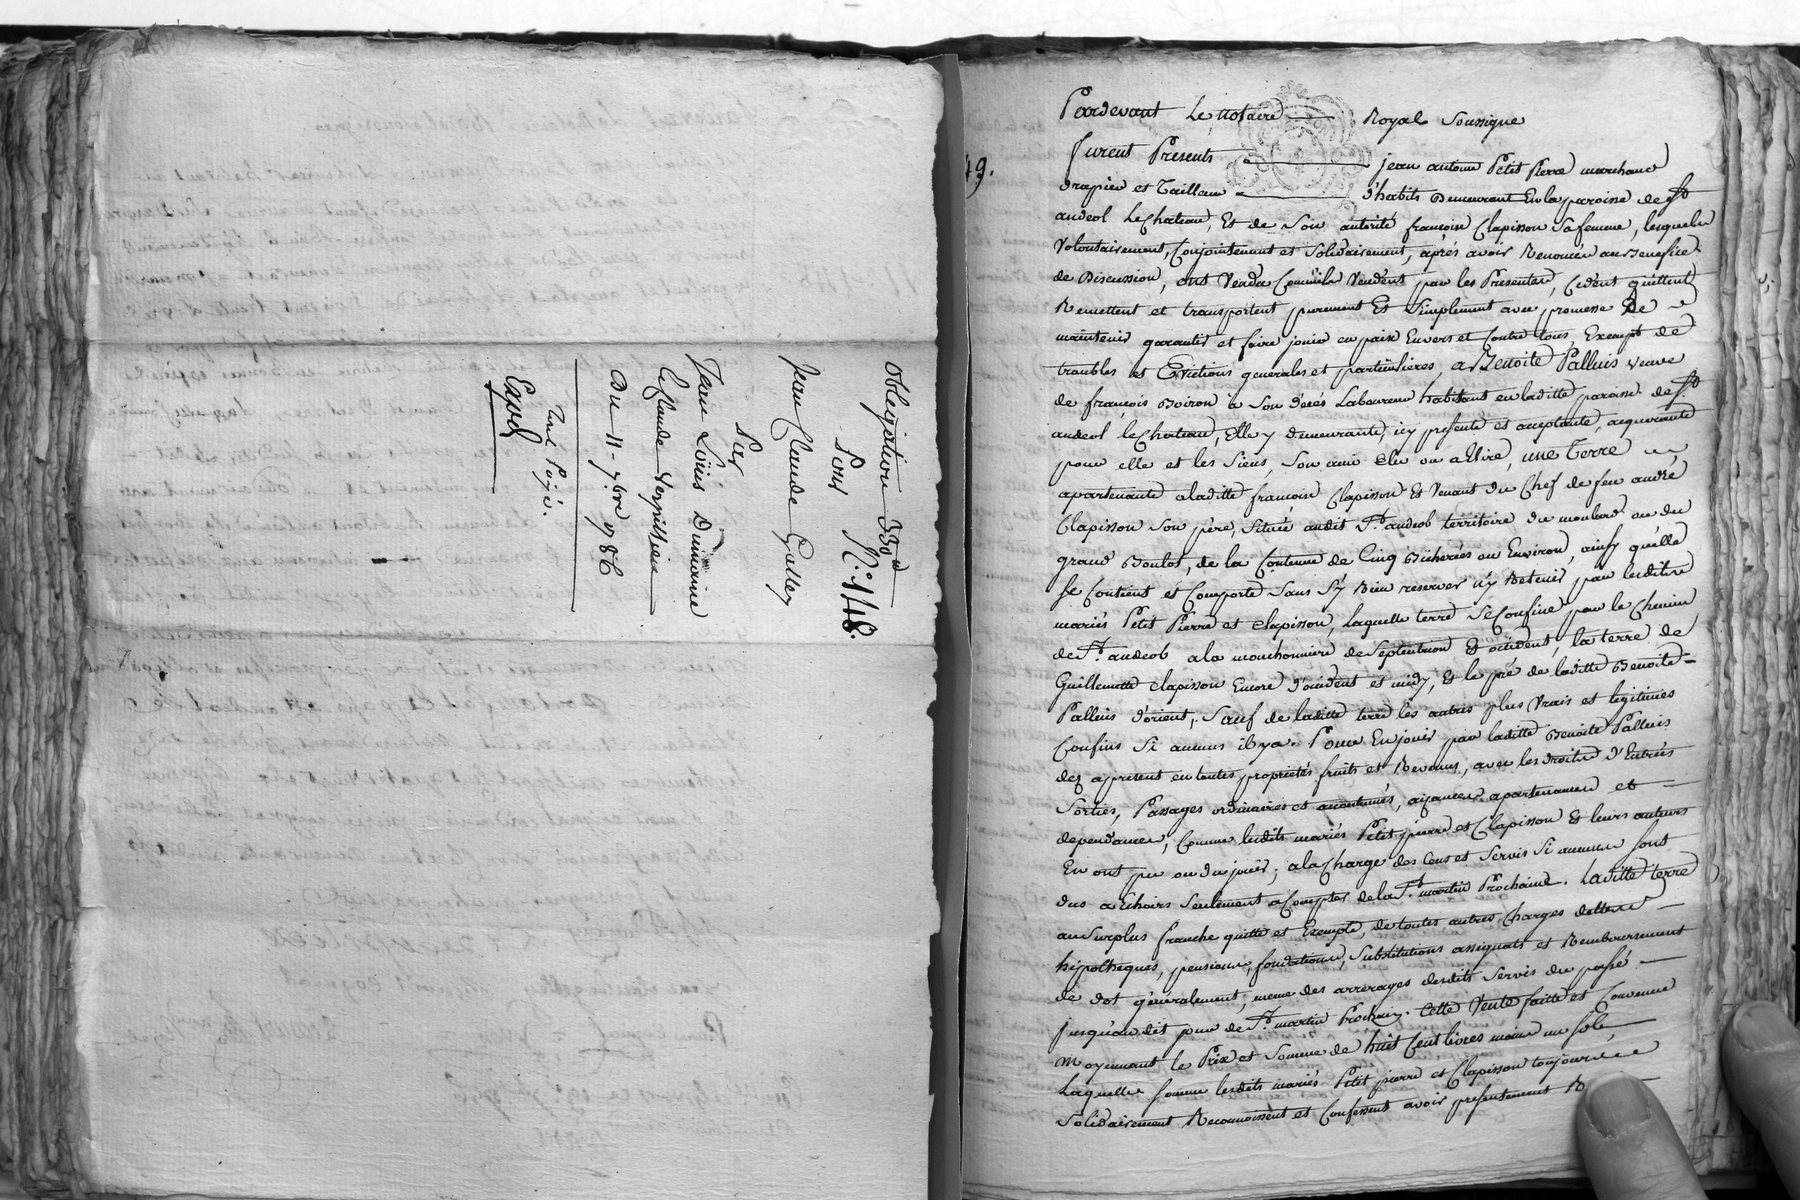 Obligation 330 #
Pour N.° 148.
Jean Claude Gulley
Par
Jean Loüis Dumaine
Claude Despillieu
Du 11 7bre 1786
Exped
49.
Pardevant Le Notaire Royal Soussigné
furent Presents jean antoine Petit Pierre marchand
drapier et Tailleur d'habits Demeurant En la paroisse de St
andeol Le Chateau, Et de Son autorité françoise Clapisson Sa femme, lesquels
Volontairement, Conjointement et Solidairement, après avoir Renoncée au Benefice
de Discussion, ont Vendu Comm'ils Vendent par les Presentes, Cedent quittent
Remettent et transportent purement Et Simplement avec promesse de
maintenir garantir et faire jouir en paix Envers et Contre tous, Exempt de
troubles et Evictions generales et particulieres, a Benoite Palluis veuve
de françois Boiron a Son décés Laboureur habitant en laditte paroisse de St
andeol le Chateau, Elle y demeurante, icy presente et acceptante, acquerante
pour elle et les Siens, Son ami Elu ou a Elire, une terre
apartenante a laditte françoise Clapisson Et Venant du Chef de feu andré
Clapisson Son père, Située audit St. andeol territoire du moulard ou du
grand Boulot, de la Contenue de Cinq Bicherées ou Environ, ainsy qu'elle
se Contient et Comporte Sans S'y Rien reserver n'y Retenir par lesdits
mariés Petit Pierre et Clapisson, Laquelle terre Se Confine par le Chemin
de St. andeol a la mouchonniere de Septentrion Et occident, la terre de
Guillemette Clapisson Encore d'occident et midy, Et le pré de laditte Benoite
Palluis d'orient, Sauf de laditte terre les autres plus Vrais et legitimes
Confins Si aucuns il y a. Pour En jouir par laditte Benoite Palluis
dez apresent en toutes proprietés fruits et Revenus, avec les droits d'Entrées
Sorties, Passages ordinaires et accoutumés, aisances apartenances et
dependances, Comme lesdits mariés Petit pierre et Clapisson Et leurs auteurs
En ont pu ou du jouir; a la Charge des Cens et Servis Si aucuns Sont
dus a Echoirs Seulement a Compter de la St. martin Prochaine. Laditte terre
au Surplus franche quitte et Exempte, de toutes autres Charges dettes
hipotheques, pensions, fondations, Substitutions assignats et Remboursement
de dot generalement, meme des arrerages desdits Servis du passé
jusqu'audit jour de St. martin Prochain. Cette Vente faitte et Convenue
Moyennant le Prix et Somme de huit Cent livres moins un sols,
Laquelle Somme lesdits mariés Petit pierre et Clapisson toujours
Solidairement Reconnoissent et Confessent avoir presentement